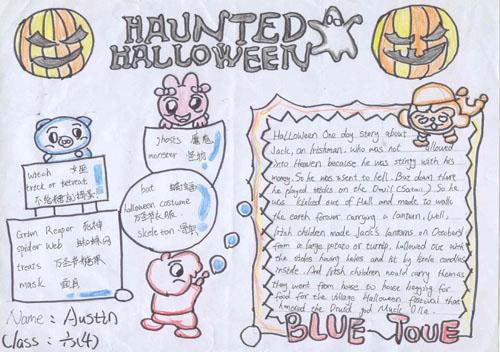 HAUNTED
HALLOWEEN
witch 女巫
trick or
不给糖就捣蛋
Grim Reaper 死神
spider Web 蜘蛛网
treats 万圣节糖果
mask 面具
ghosts 魔鬼
monster 怪物
bat 蝙蝠
halloween costume
万圣节衣服
skeleton 骨架
Name: Austin
Class:
Halloween One day story about
Jack, an Irishman, who was not allowed
into Heaven because he was stingy with his
money. So he was sent to hell. But down there
he played tricks on the Devil (Satan). So he
was kicked out of Hell and made to walk
the earth forever carrying a lantern. Well,
Irish children made Jack's lanterns on October31
from a large potato or turnip, hallowed out with
the sides having holes and lit by little candles
inside. And Irish children would carry them as
they went from house to house begging for
food for the village Halloween festival that
honored the Druid god Muck Olla.
BLUE TOUE